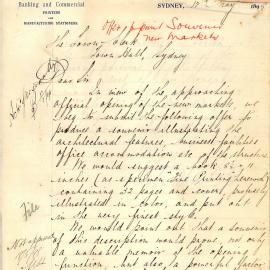 Banking and Commercial
PRINTERS
AND
MANUFACTURING STATIONERS.
SYDNEY, May 189
Offer to print Souvenir
new Markets
The Town Clerk
Town Hall, Sydney
Dear Sir
In view of the approaching
official opening of the new markets, we
beg to submit the following offer to
produce a souvenir illustrating the
architectural features, market facilities
office accommodation etc. of the structure.
We would suggest a book
inches (as a printed
containing 32 pages and cover, properly
illustrated in color, and put out
in the very finest style.
We would point out that a souvenir
of this description would prove, not only
a valuable memoir of the opening
function, but also, a powerful factor
File
Not approved